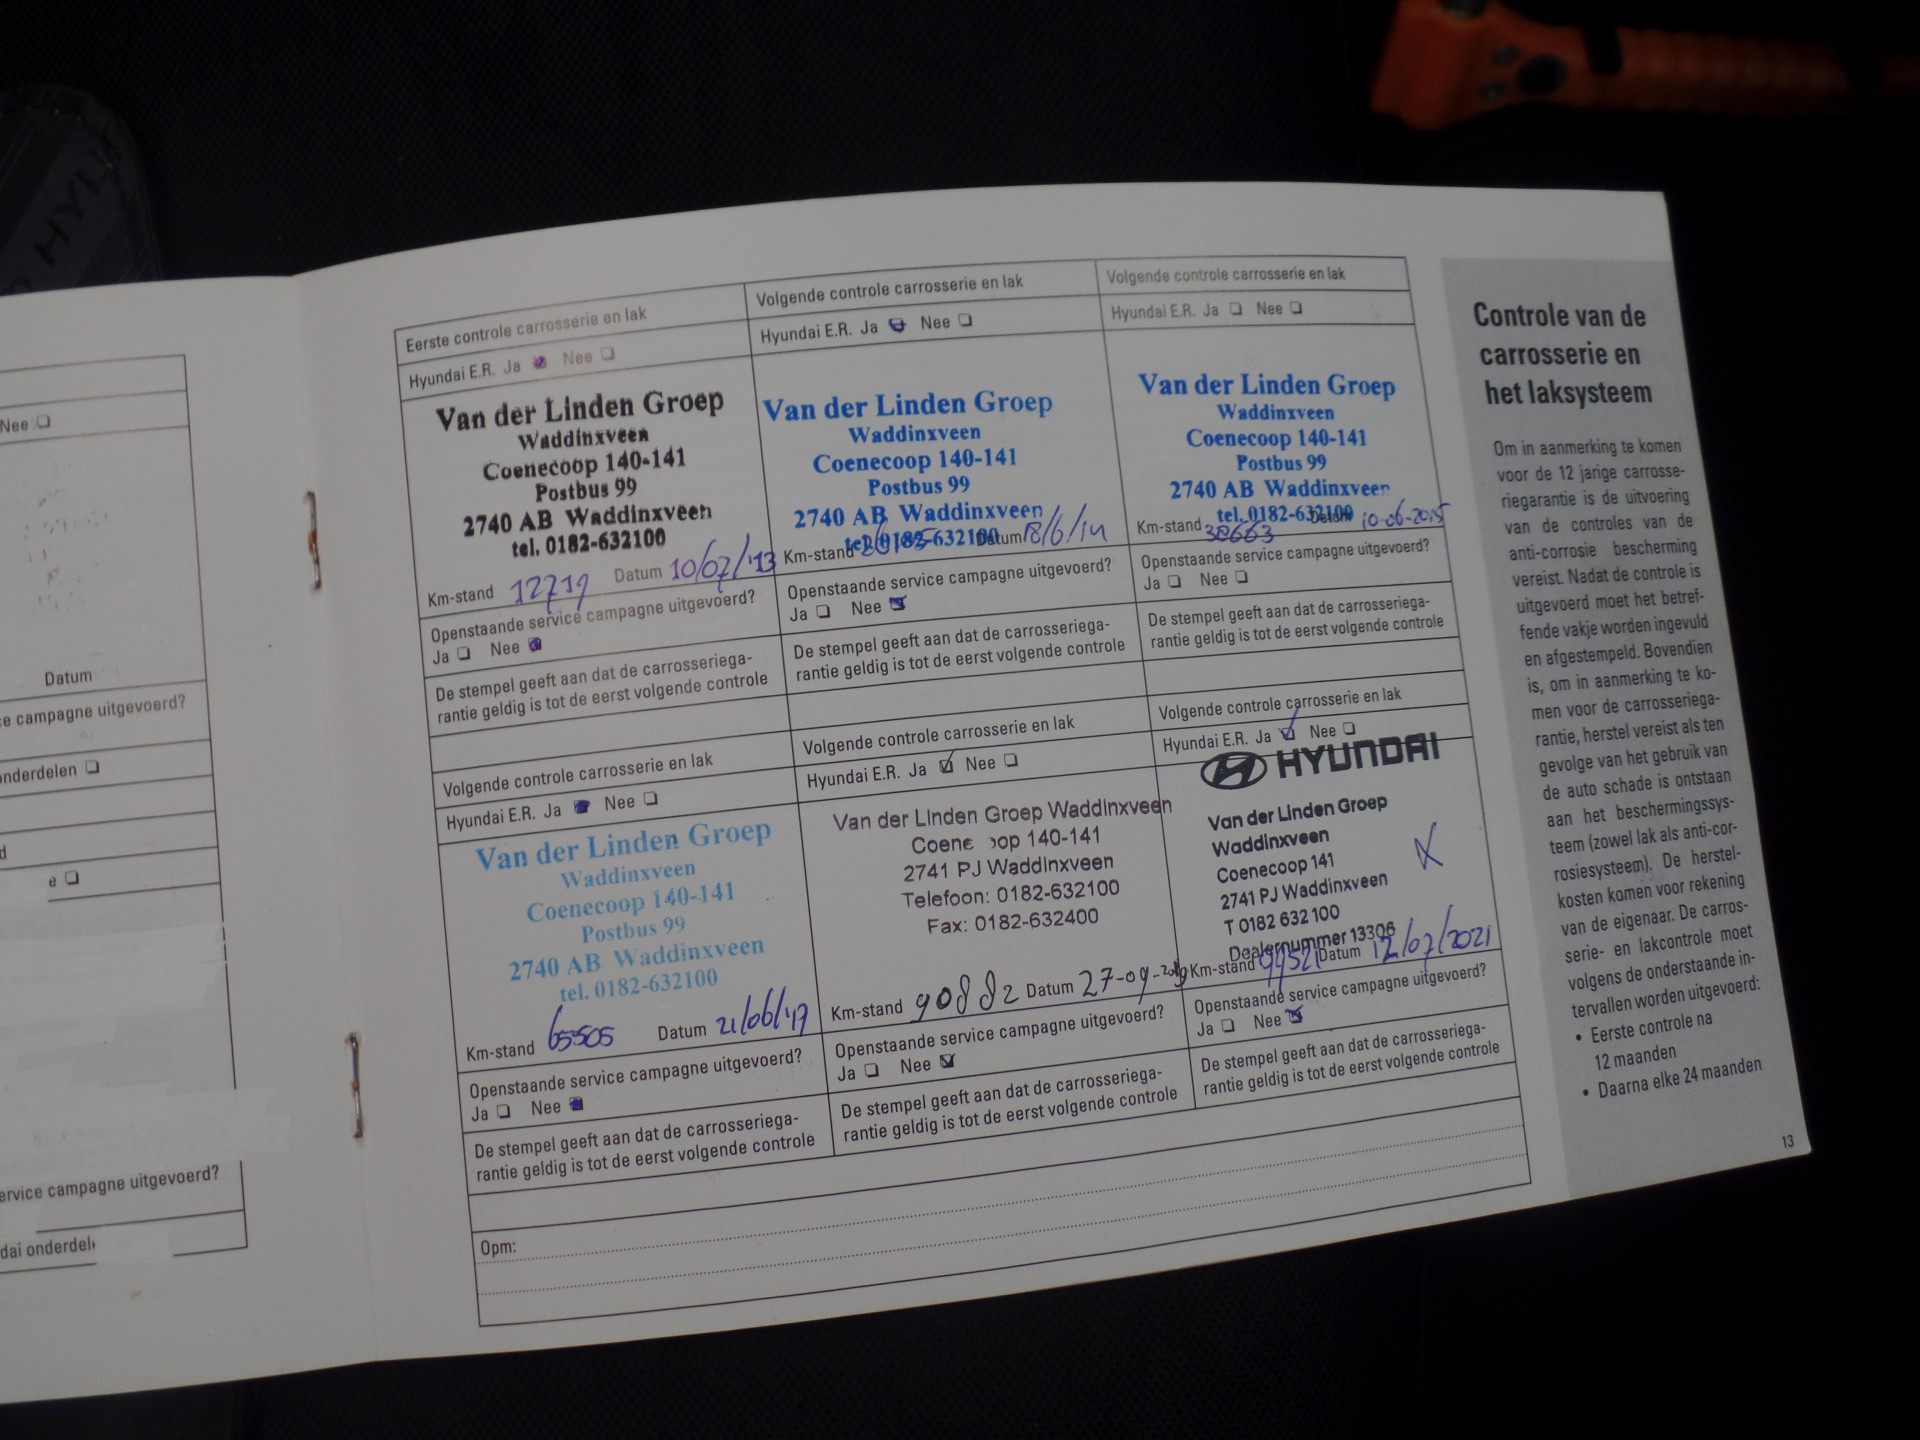 HYU
Nee ❏
Datum
e campagne uitgevoerd?
nderdelen ❏
d
e ❏
ervice campagne uitgevoerd?
dai onderdel
Eerste controle carrosserie en lak
Hyundai E.R. Ja ❏ Nee ❏
Van der Linden Groep
Waddinxveen
Coenecoop 140-141
Postbus 99
2740 AB Waddinxveen
tel. 0182-632100
Km-stand 12719 Datum 10/07/'13
Openstaande service campagne uitgevoerd?
Ja ❏ Nee ❏
De stempel geeft aan dat de carrosseriega-
rantie geldig is tot de eerst volgende controle
Volgende controle carrosserie en lak
Hyundai E.R. Ja ❏ Nee ❏
Van der Linden Groep
Waddinxveen
Coenecoop 140-141
Postbus 99
2740 AB Waddinxveen
tel. 0182-632100
Km-stand Datum 18/6/14
Openstaande service campagne uitgevoerd?
Ja ❏ Nee ❏
De stempel geeft aan dat de carrosseriega-
rantie geldig is tot de eerst volgende controle
Volgende controle carrosserie en lak
Hyundai E.R. Ja ❏ Nee ❏
Van der Linden Groep
Waddinxveen
Coenecoop 140-141
Postbus 99
2740 AB Waddinxveen
tel. 0182-632100
Km-stand 38663 Datum 10-06-2015
Openstaande service campagne uitgevoerd?
Ja ❏ Nee ❏
De stempel geeft aan dat de carrosseriega-
rantie geldig is tot de eerst volgende controle
Volgende controle carrosserie en lak
Hyundai E.R. Ja ❏ Nee ❏
Van der Linden Groep
Waddinxveen
Coenecoop 140-141
Postbus 99
2740 AB Waddinxveen
tel. 0182-632100
Km-stand 65505 Datum 21/06/'17
Openstaande service campagne uitgevoerd?
Ja ❏ Nee ❏
De stempel geeft aan dat de carrosseriega-
rantie geldig is tot de eerst volgende controle
Volgende controle carrosserie en lak
Hyundai E.R. Ja ❏ Nee ❏
Van der Linden Groep Waddinxveen
Coene oop 140-141
2741 PJ Waddinxveen
Telefoon: 0182-632100
Fax: 0182-632400
Km-stand 90882 Datum 27-09-2019
Openstaande service campagne uitgevoerd?
Ja ❏ Nee ❏
De stempel geeft aan dat de carrosseriega-
rantie geldig is tot de eerst volgende controle
Volgende controle carrosserie en lak
Hyundai E.R. Ja ❏ Nee ❏
HYUNDAI
Van der Linden Groep
Waddinxveen
Coenecoop 141
2741 PJ Waddinxveen
T 0182 632 100
Dealernummer 13306
Km-stand 99521 Datum 12/07/2021
Openstaande service campagne uitgevoerd?
Ja ❏ Nee ❏
De stempel geeft aan dat de carrosseriega-
rantie geldig is tot de eerst volgende controle
Opm:
Controle van de
carrosserie en
het laksysteem
Om in aanmerking te komen
voor de 12 jarige carrosse-
riegarantie is de uitvoering
van de controles van de
anti-corrosie bescherming
vereist. Nadat de controle is
uitgevoerd moet het betref-
fende vakje worden ingevuld
en afgestempeld. Bovendien
is, om in aanmerking te ko-
men voor de carrosseriega-
rantie, herstel vereist als ten
gevolge van het gebruik van
de auto schade is ontstaan
aan het beschermingssys-
teem (zowel lak als anti-cor-
rosiesysteem). De herstel-
kosten komen voor rekening
van de eigenaar. De carros-
serie- en lakcontrole moet
volgens de onderstaande in-
tervallen worden uitgevoerd:
• Eerste controle na
12 maanden
• Daarna elke 24 maanden
13